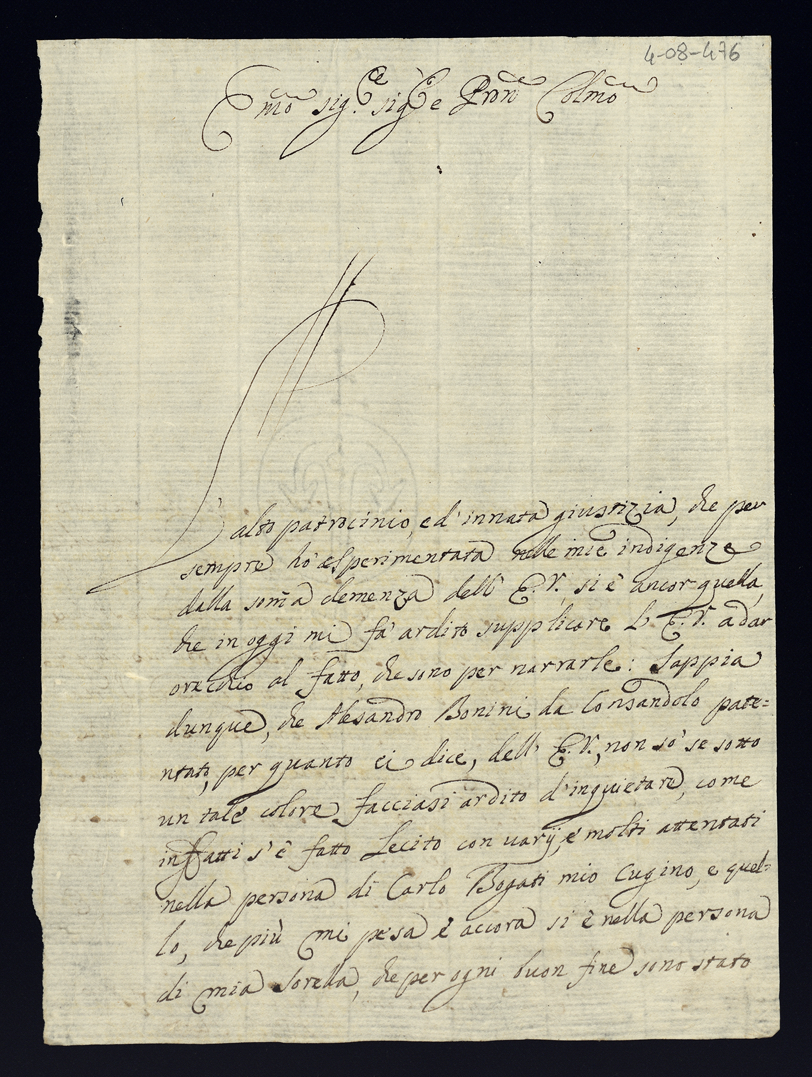 4-08-476
Emo sig.re sigre e Pron Colmo
L'alto patrocinio, ed' innata giustizia, che per
sempre hò esperimentata nelle mie indigenze
dalla soma clemenza dell' E.V., si è ancor quella,
che in oggi mi fà ardito supplicare L' E.V. a dar
orecchio al fatto, che sono per narrarle: Sappia
dunque, che Alesandro Bonini da Consandolo pate=
ntato, per quanto ei dice, dell' E.V., non sò se sotto
un tale colore facciasi ardito d'inquietare, come
infatti s'è fatto Lecito con varij, e molti attentati
nella persona di Carlo Bogati mio Cugino, e quel=
lo, che più mi pesa è accora si è nella persona
di mia Sorella, che per ogni buon fine sono stato